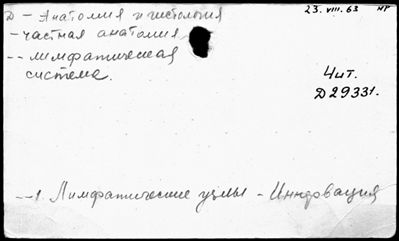 Д - Анатомия и гистология
- частная анатомия
-- лимфатическая
система.
23. VIII. 63 НР
Чит.
Д 29331.
--1. Лимфатические узлы - Иннервация